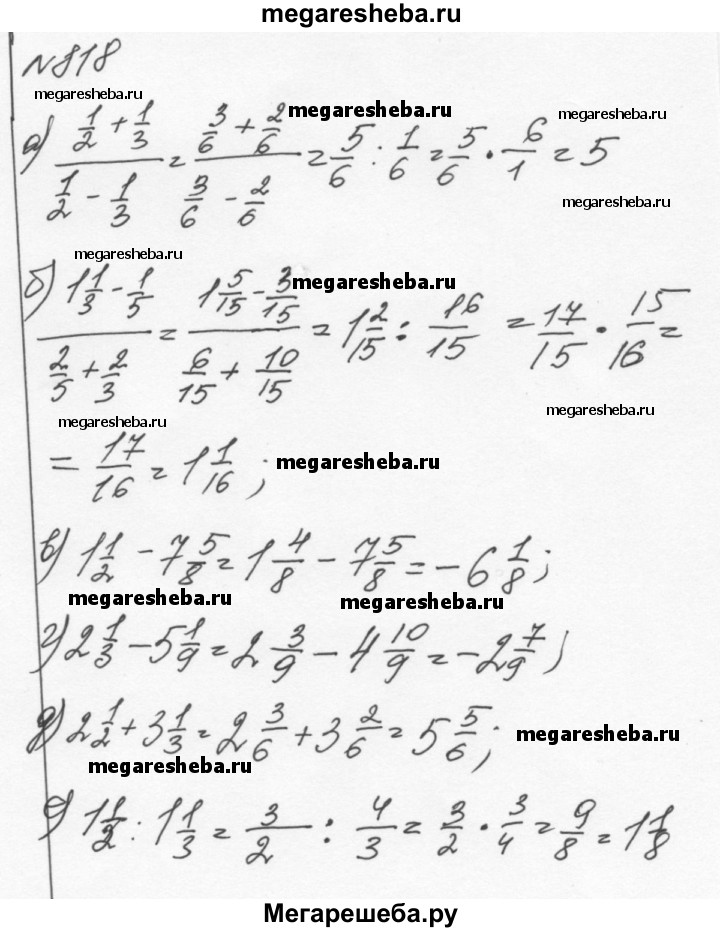 megaresheba.ru
№818
megaresheba.ru
megaresheba.ru
megaresheba.ru
а) (1/2 + 1/3)/(1/2 - 1/3) = (3/6 + 2/6)/(3/6 - 2/6) = 5/6 : 1/6 = 5/6 · 6/1 = 5
megaresheba.ru
megaresheba.ru
megaresheba.ru
б) (1 1/3 - 1/5)/(2/5 + 2/3) = (1 5/15 - 3/15)/(6/15 + 10/15) = 1 2/15 : 16/15 = 17/15 · 15/16 =
megaresheba.ru
megaresheba.ru
= 17/16 = 1 1/16;
megaresheba.ru
в) 1 1/2 - 7 5/8 = 1 4/8 - 7 5/8 = -6 1/8;
megaresheba.ru
megaresheba.ru
г) 2 1/3 - 5 1/9 = 2 3/9 - 4 10/9 = -2 7/9;
д) 2 1/2 + 3 1/3 = 2 3/6 + 3 2/6 = 5 5/6;
megaresheba.ru
megaresheba.ru
е) 1 1/2 : 1 1/3 = 3/2 : 4/3 = 3/2 · 3/4 = 9/8 = 1 1/8
Мегарешеба.ру